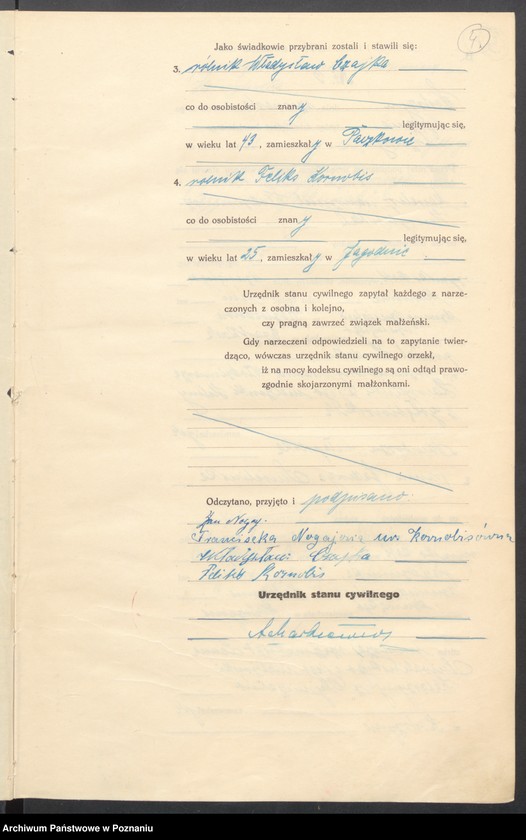 Jako świadkowie przybrani zostali i stawili się:
3. rolnik Władysław Czajka
co do osobistości znany
legitymując się,
w wieku lat 43, zamieszkały w Paczkowie
4. rolnik Feliks Kornobis
co do osobistości znany
legitymując się,
w wieku lat 25, zamieszkały w Jagodnie
Urzędnik stanu cywilnego zapytał każdego z narze-
czonych z osobna i kolejno,
czy pragną zawrzeć związek małżeński.
Gdy narzeczeni odpowiedzieli na to zapytanie twier-
dząco, wówczas urzędnik stanu cywilnego orzekł,
iż na mocy kodeksu cywilnego są oni odtąd prawo-
zgodnie skojarzonymi małżonkami.
Odczytano, przyjęto i podpisano:
Jan Nogaj.
Franciszka Nogajowa ur. Kornobisówna
Władysław Czajka
Feliks Kornobis
Urzędnik stanu cywilnego
Archiwum Państwowe w Poznaniu